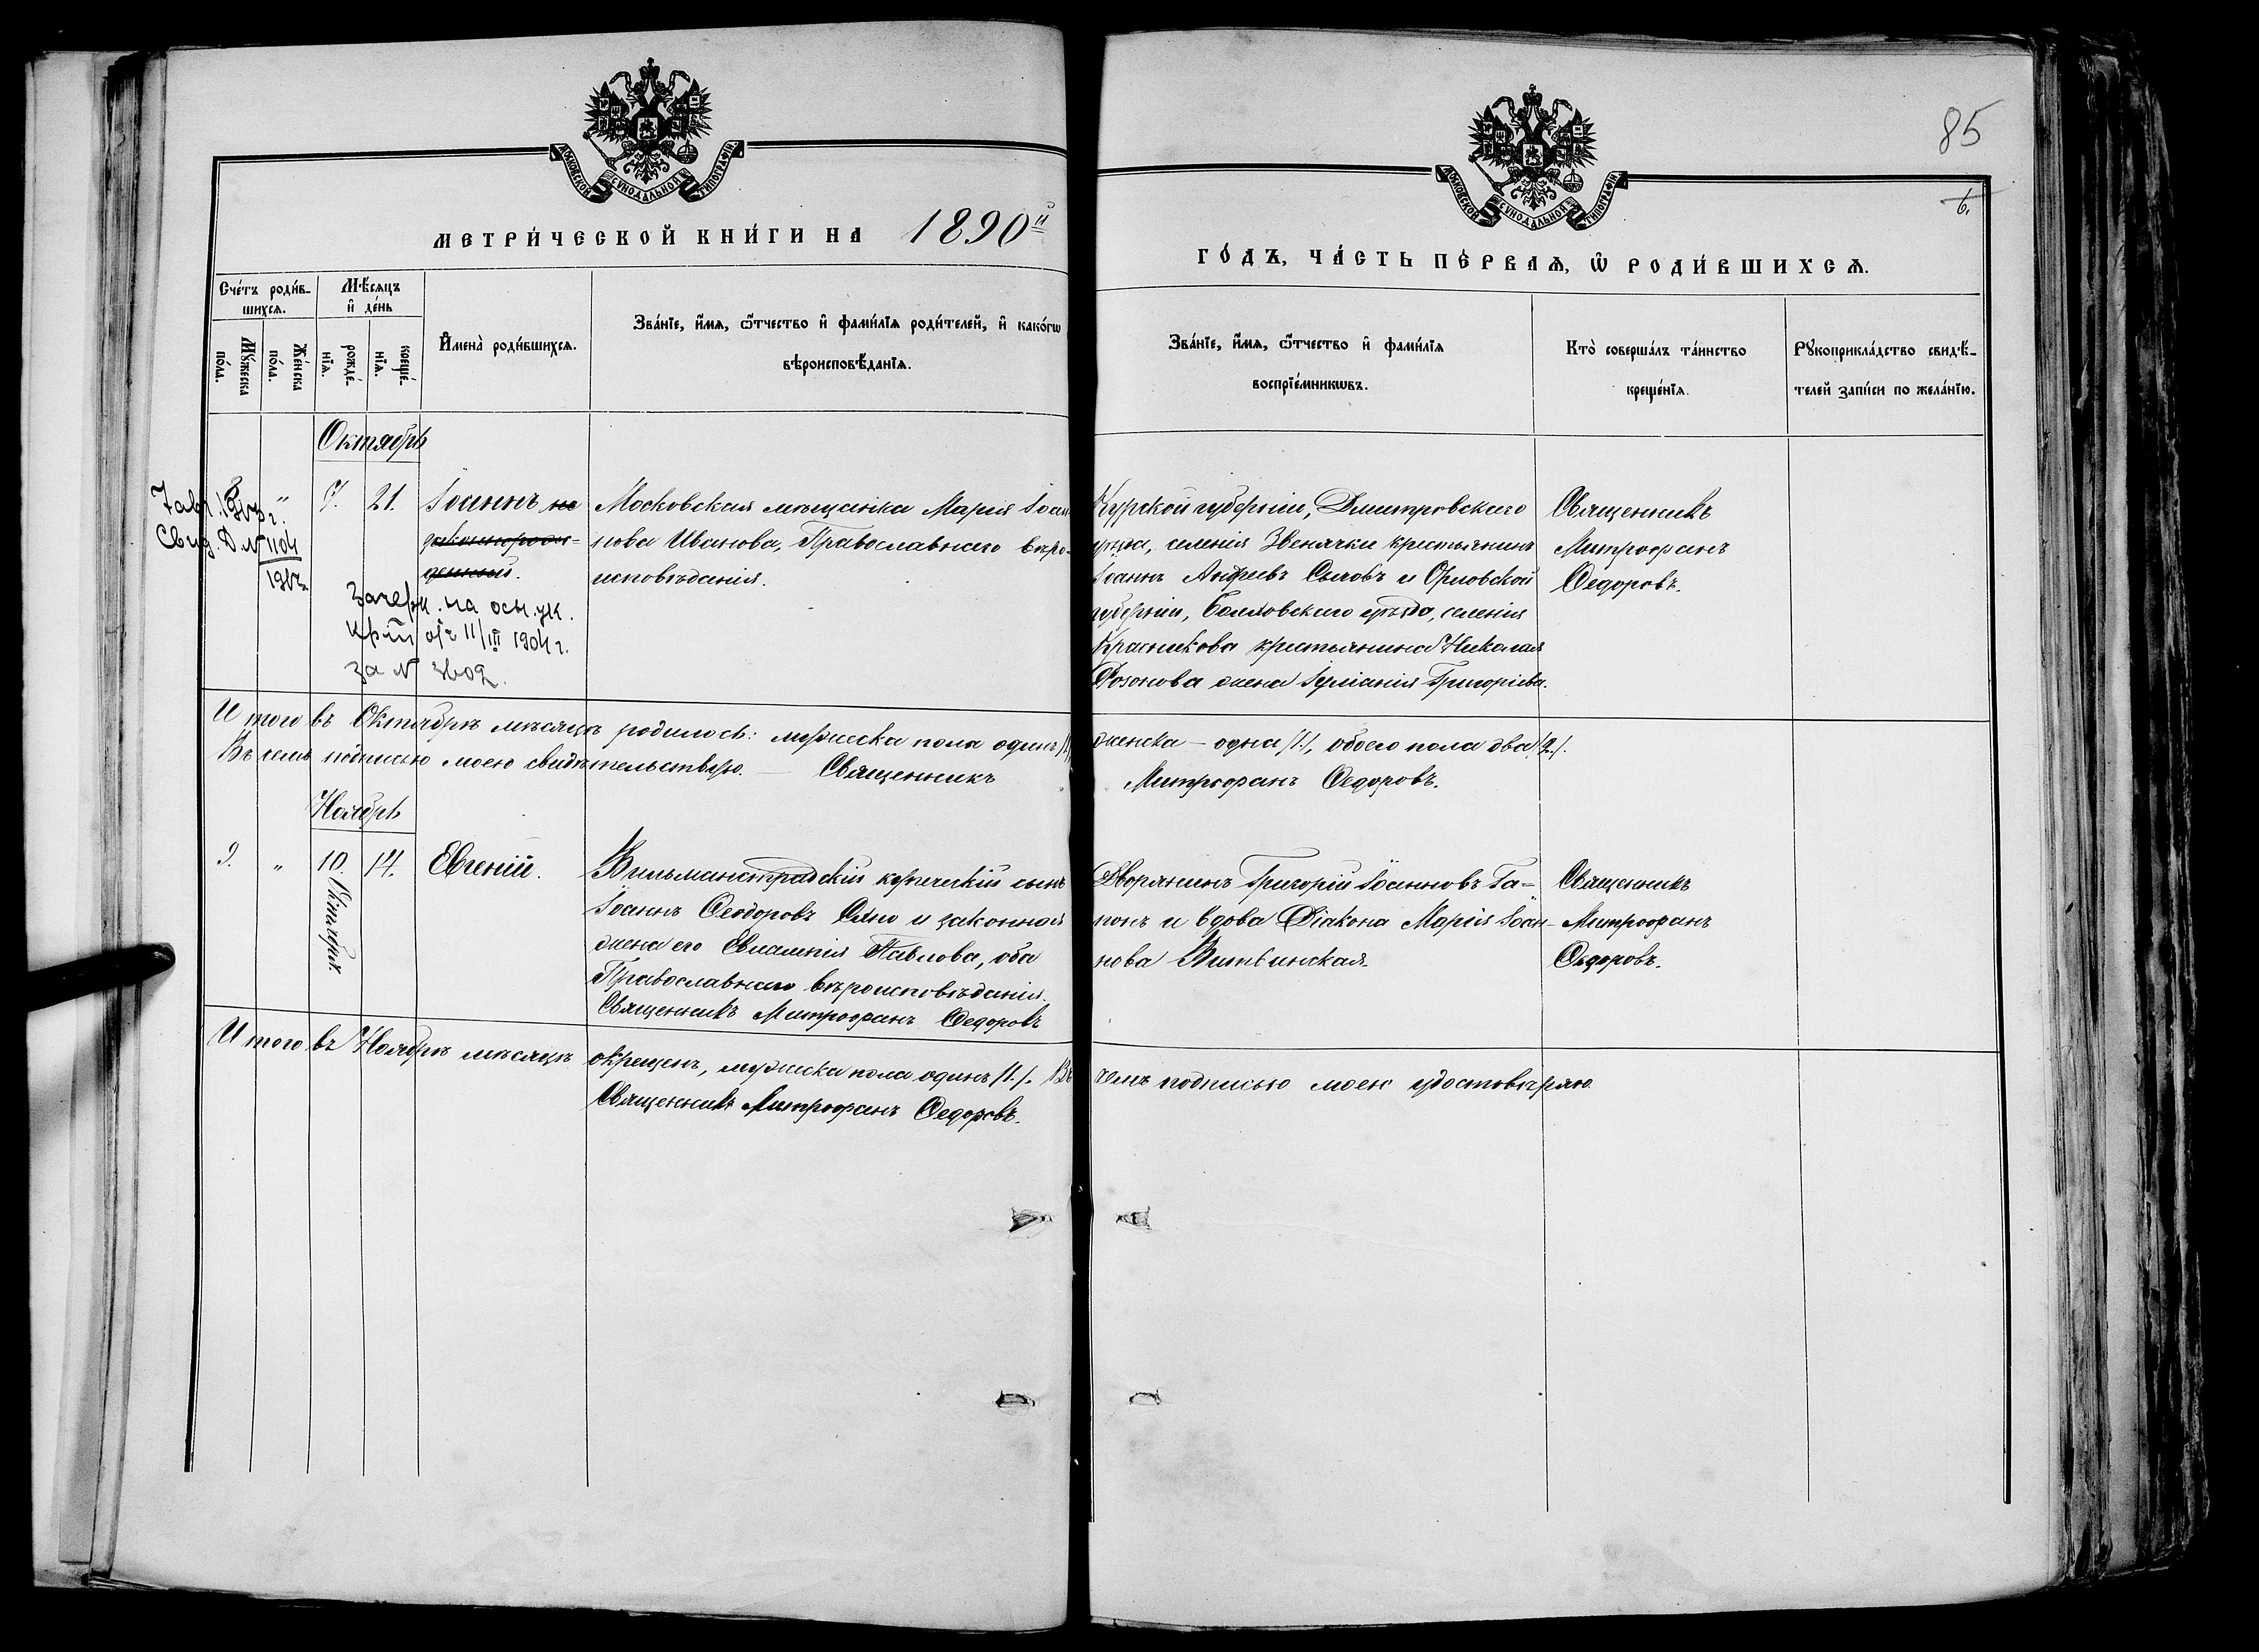 85
6.
МОСКОВСКОЙ СѴНОДАЛЬНОЙ ТИПОГРАФІИ
МОСКОВСКОЙ СѴНОДАЛЬНОЙ ТИПОГРАФІИ
МЕТРИ́ЧЕСКОЙ КНИ́ГИ НА 1890й
ГО́ДЪ, ЧА́СТЬ ПЕ́РВАѦ, Ѽ РОДИ́ВШИХСѦ.
Сче́тъ роди́в-
шихсѧ.
Мꙋ́жеска по́ла.
Же́нска по́ла.
Мѣ́сѧцъ
и҆ де́нь
рожде́-нїѧ.
креще́-нїѧ.
И҆мена̀ роди́вшихсѧ.
Зва́нїе, и҆́мѧ, ѻ҆́тчество и҆ фами́лїѧ роди́телей, и҆ како́гѡ
вѣроисповѣ́данїѧ.
Зва́нїе, и҆́мѧ, ѻ҆́тчество и҆ фами́лїѧ
воспрїе́мникѡвъ.
Кто̀ соверша́лъ та́инство
креще́нїѧ.
Рꙋкоприкла́дство свидѣ́-
телей за́писи по жела́нїю.
Октябрь
„ 7. 21.
Іоаннъ не
законнорож-
денный.
Свид. Д № 1104
Зачерк. на осн. ук.
от 11/III 1904 г.
за №
Московская мѣщанка Марія Іоан-
нова Иванова, Православнаго вѣро-
исповѣданія.
Курской губерніи, Дмитровскаго
уѣзда, селенія Звенячки крестьянинъ
Іоаннъ Сычовъ и Орловской
губерніи, Болховскаго уѣзда, селенія
Красникова крестьянина Николая
жена Іуліанія Григоріева.
Священникъ
Митрофанъ
Ѳедоровъ.
Итого въ Октябрѣ мѣсяцѣ родилось: мужеска пола одинъ /1/, женска – одна /1./, обоего пола два /2./.
Въ чемъ подписью моею свидѣтельствую. — Священникъ Митрофанъ Ѳедоровъ.
Ноябрь
9. „ 10. 14. Евгеній.
Октября.
Вильманстрадскій купеческій сынъ
Іоаннъ Ѳеодоровъ и законная
жена его Евлампія Павлова, оба
Православнаго вѣроисповѣданія.
Священникъ Митрофанъ Ѳедоровъ
Дворянинъ Григорій Іоанновъ Га-
понъ и вдова Діакона Марія Іоан-
нова Витвинская.
Священникъ
Митрофанъ
Ѳедоровъ.
Итого въ Ноябрѣ мѣсяцѣ окрещенъ, мужеска пола одинъ /1./. Въ чемъ подписью моею удостовѣряю
Священникъ Митрофанъ Ѳедоровъ.